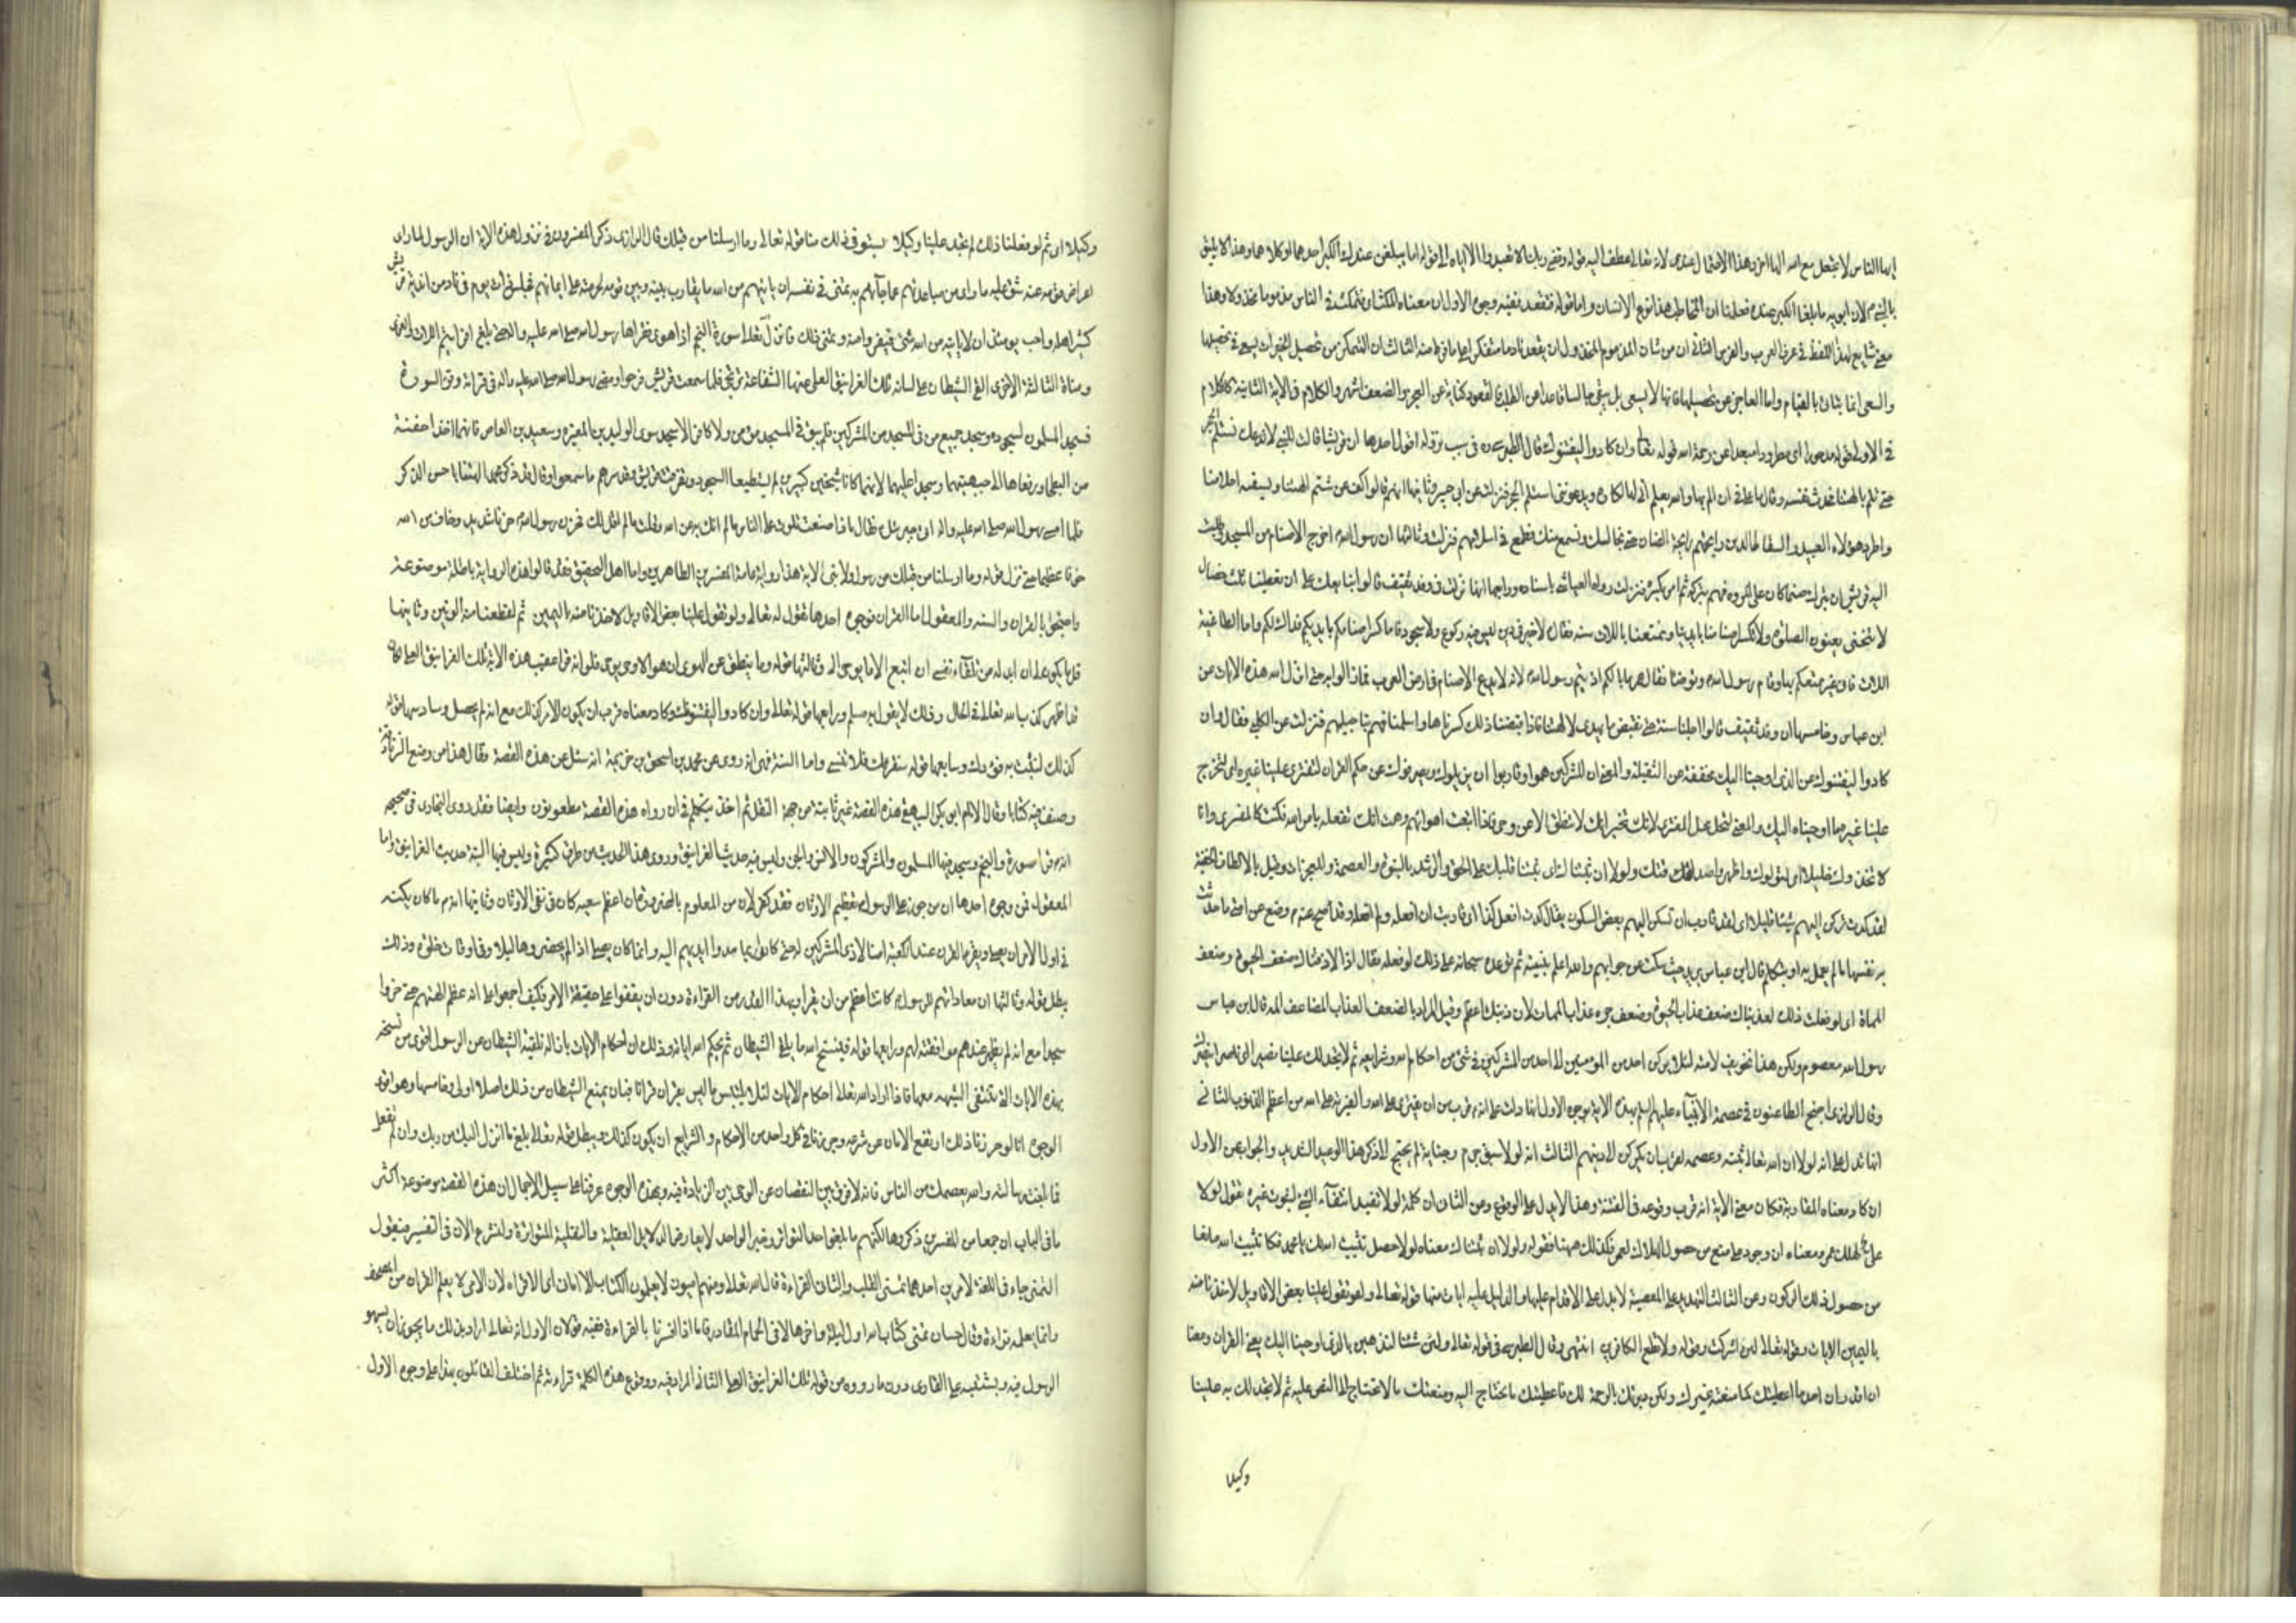 ايها الناس لا تجعل مع الله الها اخر وهذا الاحتمال عندى لانه تعالى عطف اليه قوله وقضى ربك الا تعبدوا الا اياه الى قوله اما يبلغن عندك الكبر احدهما او كلاهما وهذا لا يليق
بالنبى لان ابويه ما بلغا الكبر عنده فعلمنا ان المخاطب هذا نوع الانسان واما قوله فتقعد ففيه وجوه الاول ان معناه المكث اى فتمكث فى الناس مذموما مخذولا وهذا
معنى شايع لهذا اللفظ فى عرف العرب والفرس الثانى ان من شان المذموم المخذول ان يقعد نادما متفكرا على ما فرط منه الثالث ان التمكن من تحصيل الخيرات يسعى فى تحصيلها
والسعى انما يتاتى بالقيام واما العاجز عن تحصيلها فانه لا يسعى بل يبقى جالسا قاعدا عن الطلب فالقعود كناية عن العجز والضعف اشهر والكلام فى الاية الثانية كالكلام
فى الاولى قوله مدحورا اى مطرودا مبعدا عن رحمة الله قوله تعالى وان كادوا ليفتنونك قال الطبرسى ره فى سبب نزوله اقوال احدها ان قريشا قالت للنبى لا ندعك تستلم الحجر
حتى تلم بالهتنا فحدث نفسه وقال ما على فى ان الم بها والله يعلم انى لها لكاره ويدعونى استلم الحجر فنزلت عن ابن جبير وثانيها انهم قالوا كف عن شتم الهتنا وتسفيه احلامنا
واطرد هؤلاء العبيد والسقاط الذين رايحتهم رايحة الضان حتى نجالسك ونسمع منك فطمع فى اسلامهم فنزلت وثالثها ان رسول الله ص اخرج الاصنام من المسجد فطلبت
اليه قريش ان يترك صنما كان على المروة فهم بتركه ثم امر بكسره فنزلت رواه العياشى باسناده ورابعها انها نزلت فى وفد ثقيف قالوا نبايعك على ان تعطينا ثلث خصال
لا ننحنى يعنون الصلوة ولا نكسر اصنامنا بايدينا وتمتعنا باللات سنة فقال لا خير فى دين ليس فيه ركوع ولا سجود فاما كسر اصنامكم بايديكم فذاك لكم واما الطاغية
اللات فانى غير ممتعكم بها وقام رسول الله ص وتوضا فقال عمر ما بالكم اذيتم رسول الله ص انه لا يدع الاصنام فى ارض العرب فما زالوا به حتى انزل الله هذه الايات عن
ابن عباس وخامسها ان وفد ثقيف قالوا اجلنا سنة حتى نقبض ما يهدى لالهتنا فاذا قبضنا ذلك كسرناها واسلمنا فهم بتاجيلهم فنزلت عن الكلبى فقال وان
كادوا ليفتنونك عن الذى اوحينا اليك مخففة من الثقيلة والمعنى ان المشركين هموا وقاربوا ان يزيلوك ويصرفوك عن حكم القران لتفترى علينا غيره اى لتخترع
علينا غير ما اوحيناه اليك والمعنى لتحل محل المفترى لانك تخبر انك لا تنطق الا عن وحى فاذا اتبعت اهوائهم وهمت انك تفعله بامر الله فكنت كالمفترى واذا
لاتخذوك خليلا اى لتولوك واظهروا صداقتك ولولا ان ثبتناك اى ثبتنا قلبك على الحق والرشد بالنبوة والعصمة والمعجزات وقيل بالالطاف الخفية
لقد كدت تركن اليهم شيئا قليلا اى لقد قاربت ان تسكن اليهم بعض السكون يقال كدت افعل كذا اى قاربت ان افعله ولم افعله وقد صح عنه ص وضع عن امتى ما حدثت
به نفسها ما لم يعمل به او يتكلم قال ابن عباس يريد حيث سكت عن جوابهم والله اعلم بنيته ثم توعده سبحانه على ذلك لو فعله فقال اذا لاذقناك ضعف الحيوة وضعف
المماة اى لو فعلت ذلك لعذبناك ضعف عذاب الحيوة وضعف عذاب الممات لان ذنبك اعظم وقيل المراد بالضعف العذاب المضاعف المه قال ابن عباس
رسول الله معصوم ولكن هذا تخويف لامته لئلا يركن احد من المؤمنين الى احد من المشركين فى شئ من احكام الله وشرايعه ثم لا تجد لك علينا نصيرا اى ناصرا ينصرك
وقال الرازى احتج الطاعنون فى عصمة الانبياء عليهم السلم بهذه الاية بوجوه الاول انها دلت على انه قرب من ان يفترى على الله والفرية على الله من اعظم الذنوب الثانى
انها تدل على انه لولا ان الله تعالى ثبته وعصمه لقرب ان يركن الى دينهم الثالث انه لولا سبق جرم وجناية لم يحتج الى ذكر هذا الوعيد الشديد والجواب عن الاول
ان كاد معناه المقاربة فكان معنى الاية انه قرب وقوعه فى الفتنة وهذا لا يدل على الوقوع وعن الثانى ان كلمة لولا تفيد انتفاء الشئ لثبوت غيره تقول لولا
على لهلك عمر ومعناه ان وجود على منع من حصول الهلاك لعمر فكذلك ههنا فقوله ولولا ان ثبتناك معناه لولا حصل تثبيت الله لك يا محمد فكان تثبيت الله مانعا
من حصول ذلك الركون وعن الثالث ان التهديد على المعصية لا يدل على الاقدام عليها والدليل عليه ايات منها قوله تعالى ولو تقول علينا بعض الاقاويل لاخذنا منه
باليمين الايات وقوله تعالى لئن اشركت وقوله ولا تطع الكافرين انتهى وقال الطبرسى فى قوله تعالى ولئن شئنا لنذهبن بالذى اوحينا اليك يعنى القران ومعناه
ان اقدر ان اخذ ما اعطيتك كما منعته غيرك ولكن دبرتك بالرحمة لك فاعطيتك ما تحتاج اليه ومنعتك ما لا تحتاج الى النص عليه ثم لا تجد لك به علينا
وكيلا
وكيلا اى ثم لو فعلنا ذلك لم تجد علينا وكيلا يستوفى ذلك منا قوله تعالى وما ارسلنا من قبلك قال الرازى ذكر المفسرون فى نزول هذه الاية ان الرسول لما راى
اعراض قومه عنه شق عليه ما راى من مباعدتهم عما جآءهم به تمنى فى نفسه ان ياتيهم من الله ما يقارب بينه وبين قومه لحرصه على ايمانهم فجلس ذات يوم فى ناد من اندية قريش
كثير اهله واحب يومئذ ان لا ياتيه من الله شئ فينفروا عنه وتمنى ذلك فانزل تعالى سورة النجم اذا هوى فقراها رسول الله صلى الله عليه واله حتى بلغ افرايتم اللات والعزى
ومناة الثالثة الاخرى القى الشيطان على لسانه تلك الغرانيق العلى منها الشفاعة ترتجى فلما سمعت قريش فرحوا ومضى رسول الله صلى الله عليه واله فى قرائة وقرء السورة
فسجد المسلمون لسجوده وسجد جميع من فى المسجد من المشركين فلم يبق فى المسجد مؤمن ولا كافر الا سجد سوى الوليد بن المغيرة وسعيد بن العاص فانهما اخذا حفنة
من البطحاء ورفعاها الى جبهتيهما وسجدا عليها لانهما كانا شيخين كبيرين لم يستطيعا السجود وتفرقت قريش وقد سرهم ما سمعوا وقالوا قد ذكر محمد الهتنا باحسن الذكر
فلما امسى رسول الله صلى الله عليه واله اتى جبرئيل فقال ماذا صنعت تلوت على الناس ما لم اتك به عن الله وقلت ما لم اقل لك فحزن رسول الله ص حزنا شديدا وخاف من الله
خوفا عظيما حتى نزل قوله وما ارسلنا من قبلك من رسول ولا نبى الاية هذا رواية عامة المفسرين الظاهريين واما اهل التحقيق فقد قالوا هذه الرواية باطلة موضوعة
واحتجوا بالقران والسنه والمعقول اما القران فوجوه احدها قوله تعالى ولو تقول علينا بعض الاقاويل لاخذنا منه باليمين ثم لقطعنا منه الوتين وثانيها
قل ما يكون لى ان ابدله من تلقآء نفسى ان اتبع الا ما يوحى الى وثالثها قوله وما ينطق عن الهوى ان هو الا وحى يوحى فلو انه قرا عقيب هذه الاية تلك الغرانيق العلى لكان
قد ظهر كذب الله تعالى فى الحال وذلك لا يقوله مسلم ورابعها قوله تعالى وان كادوا ليفتنونك وكاد معناه قرب ان يكون الامر كذلك مع انه لم يحصل وسادسها قوله
كذلك لنثبت به فؤادك وسابعها قوله سنقرئك فلا تنسى واما السنة فهى انه روى عن محمد بن اسحق بن خزيمة انه سئل عن هذه القصة وقال هذا من وضع الزنادقة
وصنف فيه كتابا وقال الامام ابو بكر البيهقى هذه القصة غير ثابتة من جهة النقل ثم اخذ يتكلم فى ان رواه هذه القصة مطعونون وايضا فقد روى البخارى فى صحيحه
انه ص قرا سورة والنجم وسجد فيها المسلمون والمشركون والانس والجن وليس فيه حديث الغرانيق وروى هذا الحديث من طرق كثيرة وليس فيها البتة حديث الغرانيق واما
المعقول فمن وجوه احدها ان من جوز على الرسول ص تعظيم الاوثان فقد كفر لان من المعلوم بالضرورة ان اعظم سعيه كان فى نفى الاوثان وثانيها انه ص ما كان يمكنه
فى اول الامر ان يصلى ويقرء القران عند الكعبة امنا لاذى المشركين له حتى كانوا ربما مدوا ايديهم اليه وانما كان يصلى اذا لم يحضروها ليلا وفى اوقات خلوة وذلك
يبطل قوله وثالثها ان معاداتهم للرسول ص كانت اعظم من ان يقروا بهذا القدر من القراءة دون ان يقفوا على حقيقة الامر فكيف اجمعوا على انه عظم الهتهم حتى خروا
سجدا مع انه لم يظهر عندهم موافقته لهم ورابعها قوله فينسخ الله ما يلقى الشيطان ثم يحكم الله اياته وذلك ان احكام الايات بازالة تلقية الشيطان عن الرسول اقوى من نسخه
بهذه الايات التى تنتفى الشبهه معها فاذا اراد الله تعالى احكام الايات لئلا يلتبس ما ليس بقران قرانا فبان يمنع الشيطان من ذلك اصلا اولى وخامسها وهو اقوى
الوجوه انا لو جوزنا ذلك ارتفع الامان عن شرعه وجوزنا فى كل واحد من الاحكام والشرايع ان يكون كذلك ويبطل قوله تعالى بلغ ما انزل اليك من ربك وان لم تفعل
فما بلغت رسالته والله يعصمك من الناس فانه لا فرق بين النقصان عن الوحى وبين الزيادة فيه وبهذه الوجوه عرفنا على سبيل الاجمال ان هذه القصة موضوعة اكثر
ما فى الباب ان جمعا من المفسرين ذكروها لكنهم ما بلغوا حد التواتر وخبر الواحد لا يعارض الدلايل العقلية والنقلية المتواترة ولنشرع الان فى التفسير فنقول
التمنى جاء فى اللغة لامرين احدهما تمنى القلب والثانى القراءة قال الله تعالى ومنهم اميون لا يعلمون الكتاب الا امانى اى الا قراءة لان الامى لا يعلم القران من المصحف
وانما يعلمه قراءة وقال حسان تمنى كتاب الله اول ليلة واخرها لاقى الحمام المقادر فاما اذا فسرنا بالقراءة ففيه قولان الاول انه تعالى اراد بذلك ما يجوز ان يسهو
الرسول فيه ويشتبه على القارى دون ما رووه من قوله تلك الغرانيق العلى الثانى المراد فيه وقوع هذه الكلمة قراءته ثم اختلف القائلون بهذا على وجوه الاول